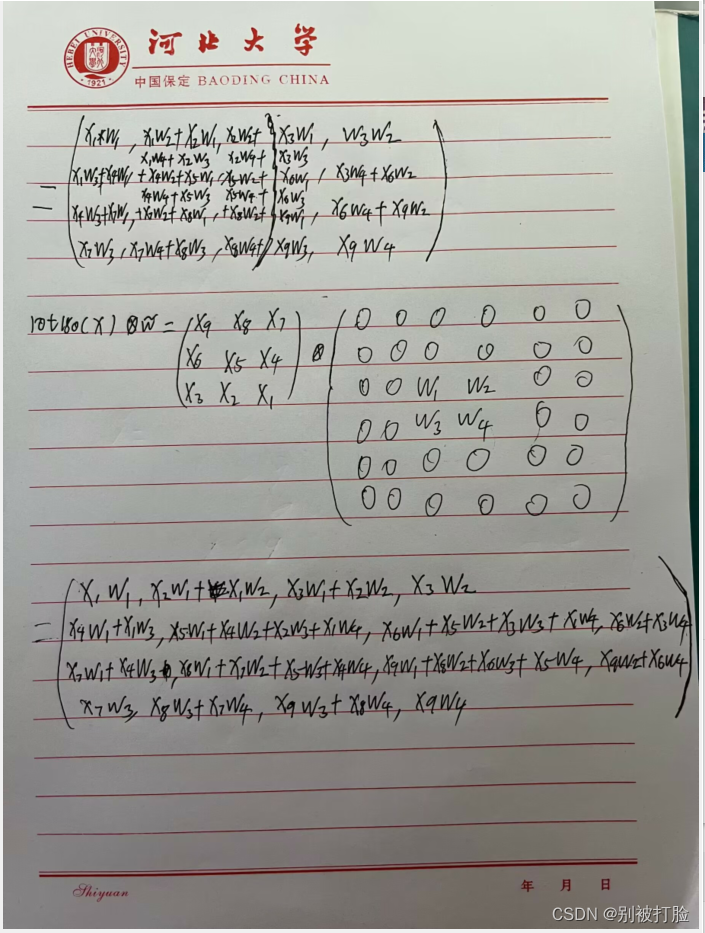 HEBEI UNIVERSITY
1921
河北大学
中国保定 BAODING CHINA
x₁w₁, x₁w₂+x₂w₁, x₂w₂+ x₃w₁, w₃w₂
x₁w₄+x₂w₃ x₂w₄+ x₃w₃
x₁w₃+x₄w₁, +x₄w₂+x₅w₁, x₅w₂+ x₆w₁, x₃w₄+x₆w₂
x₄w₄+x₅w₃ x₅w₄+ x₆w₃
= x₄w₃+x₇w₁, +x₇w₂+x₈w₁, +x₈w₂+ x₉w₁, x₆w₄+x₉w₂
x₇w₃, x₇w₄+x₈w₃, x₈w₄+ x₉w₃, x₉w₄
0 0 0 0 0 0
rot180(x) ⊗ w̃ = x₉ x₈ x₇
x₆ x₅ x₄ ⊗ 0 0 0 0 0 0
x₃ x₂ x₁ 0 0 w₁ w₂ 0 0
0 0 w₃ w₄ 0 0
0 0 0 0 0 0
0 0 0 0 0 0
x₁w₁, x₂w₁+x₁w₂, x₃w₁+x₂w₂, x₃w₂
= x₄w₁+x₁w₃, x₅w₁+x₄w₂+x₂w₃+x₁w₄, x₆w₁+x₅w₂+x₃w₃+x₂w₄, x₆w₂+x₃w₄
x₇w₁+x₄w₃, x₈w₁+x₇w₂+x₅w₃+x₄w₄, x₉w₁+x₈w₂+x₆w₃+x₅w₄, x₉w₂+x₆w₄
x₇w₃, x₈w₃+x₇w₄, x₉w₃+x₈w₄, x₉w₄
Shiyuan
年 月 日
CSDN @别被打脸